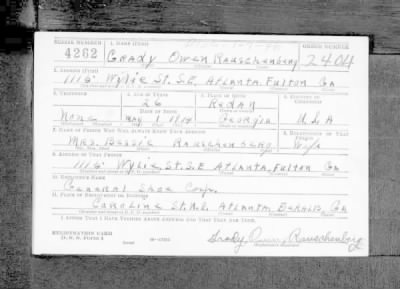 SERIAL NUMBER 1. NAME (Print) ORDER NUMBER
4262 Grady Owen Rauschenberg 2404
2. ADDRESS (Print)
1116 Wylie St. S.E. Atlanta, Fulton Ga
3. TELEPHONE 4. AGE IN YEARS 5. PLACE OF BIRTH 6. COUNTRY OF CITIZENSHIP
26 Redan
DATE OF BIRTH
None May 1 1914 Georgia U.S.A
7. NAME OF PERSON WHO WILL ALWAYS KNOW YOUR ADDRESS 8. RELATIONSHIP OF THAT PERSON
Mrs. Bessie Rauschenberg Wife
9. ADDRESS OF THAT PERSON
1116 Wylie, St. S.E Atlanta, Fulton Ga
10. EMPLOYER'S NAME
General Shoe Corp.
11. PLACE OF EMPLOYMENT OR BUSINESS
Caroline St. N.E. Atlanta, DeKalb, Ga
I AFFIRM THAT I HAVE VERIFIED ABOVE ANSWERS AND THAT THEY ARE TRUE.
REGISTRATION CARD
D. S. S. Form 1 Grady Owen Rauschenberg